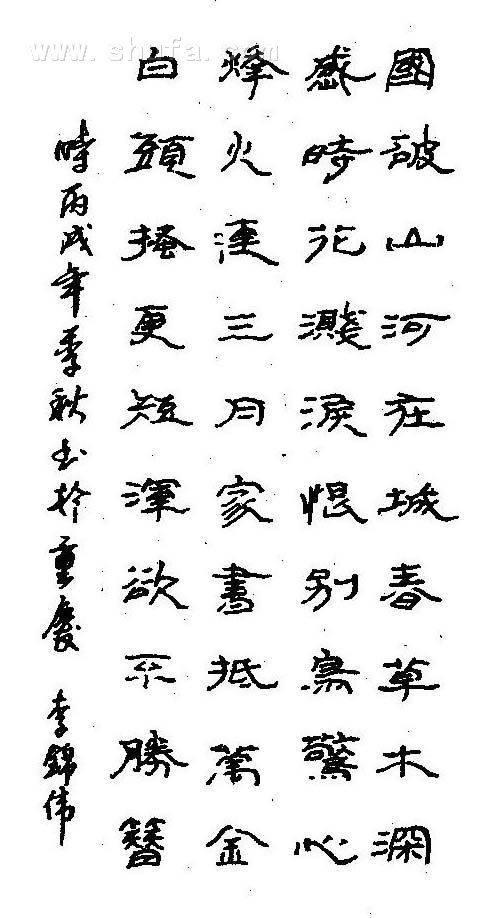 國破山河在城春草木深
感時花濺淚恨別鳥驚心
烽火連三月家書抵萬金
白頭搔更短渾欲不勝簪
時丙戌年季秋書於重慶 李錦偉
www.shufa.com